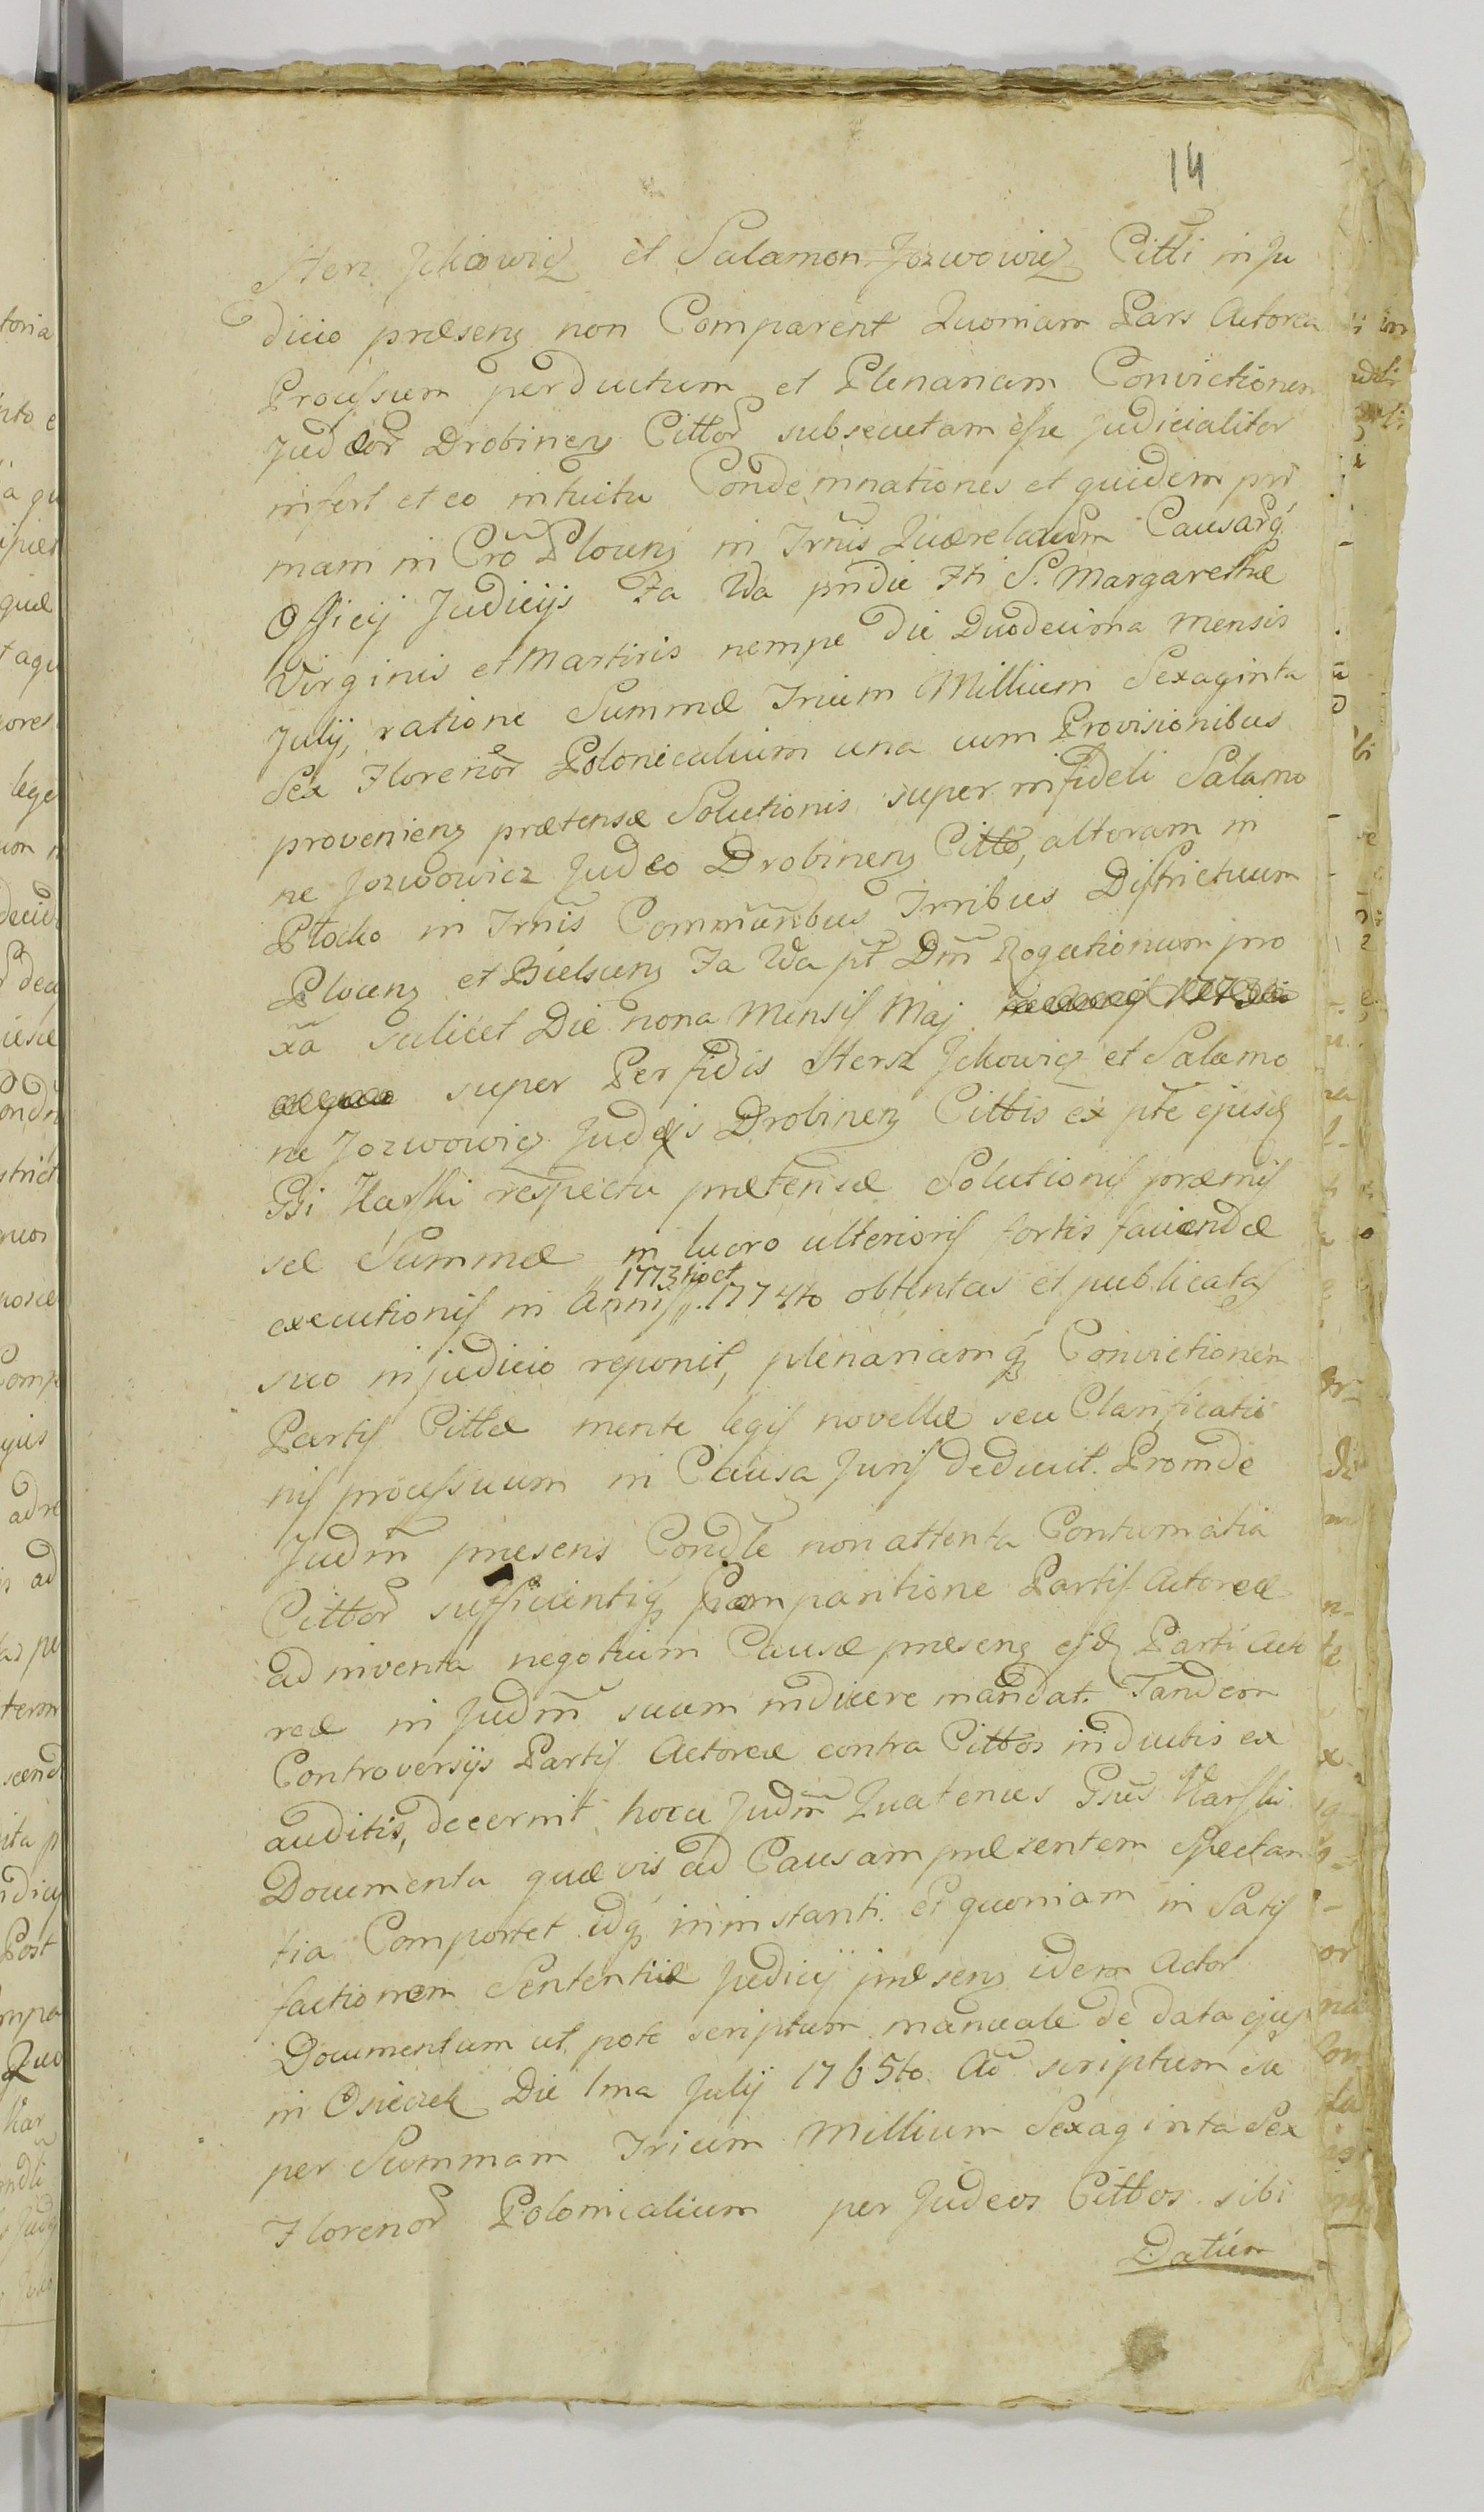 14
Hersz Jckowicz et Salamon Jozwowicz Citti in Ju
dicio præsenz non Comparent Quoniam Pars Actorea
Processum perductum et Plenariam Convictionem
Judæor Drobinenz Cittor subsecutam esse Judicialiter
infert et eo intuitu Condemnationes et quidem pri
mam in Cro Plocenz in Trnis Quærelarum Causarq
Officij Judicijs Fa IVa pridie Fti S. Margarethæ
Virginis et Martiris nempe die Duodecima Mensis
Julij, ratione Summæ Trium Millium Sexaginta
Sex Florenor Polonicalium una cum Provisionibus
provenienz prætensæ Solutionis super infideli Salamo
ne Jozwowicz Judeo Drobinenz Citto, alteram in
Plocko in Trnis Communibus Trribus Districtuum
Plocenz et Bielscenz Fa IVa pt Dm Rogationum pro
xa scilicet Die nona Mensis Maj
super Perfidis Hersz Jckowicz et Salamo
ne Jozwowicz Judejs Drobinenz Cittis ex pte ejusd
Gsi Karski respectu prætensæ Solutionis præmis
sæ Summæ in lucro ulterioris fortis faciendæ
1773tio et
executionis in Annis 1774to obtentas et publicatas
suo in judicio reponit, plenariamq Convictionem
Partis Cittæ mente legis novellæ seu Clarificatio
nis processuum in Causa Juris deducit. Proinde
Judm præsens Condle non attenta Contumatia
Cittor sufficientiq Comparitione Partis Actoreæ
adinventa negotium Causæ præsenz ejsd Parti Acto
reæ in Judm suum inducere mandat. Tandem
Controversijs Partis Actoreæ contra Cittos inductis ex
auditis, decernit hocce Judm Quatenus Gsus Karski
Documenta quævis ad Causam præsentem spectan
tia Comportet idq in instanti. et quoniam in Satis
factionem Sententiæ Judicij præsenz idem Actor
Documentum ut pote scriptum manuale de data ejus
in Osieczek Die 1ma Julij 1765to Ao scriptum
per Summam Trium Millium Sexaginta Sex
Florenor Polonicalium per Judeos Cittos sibi
Datum